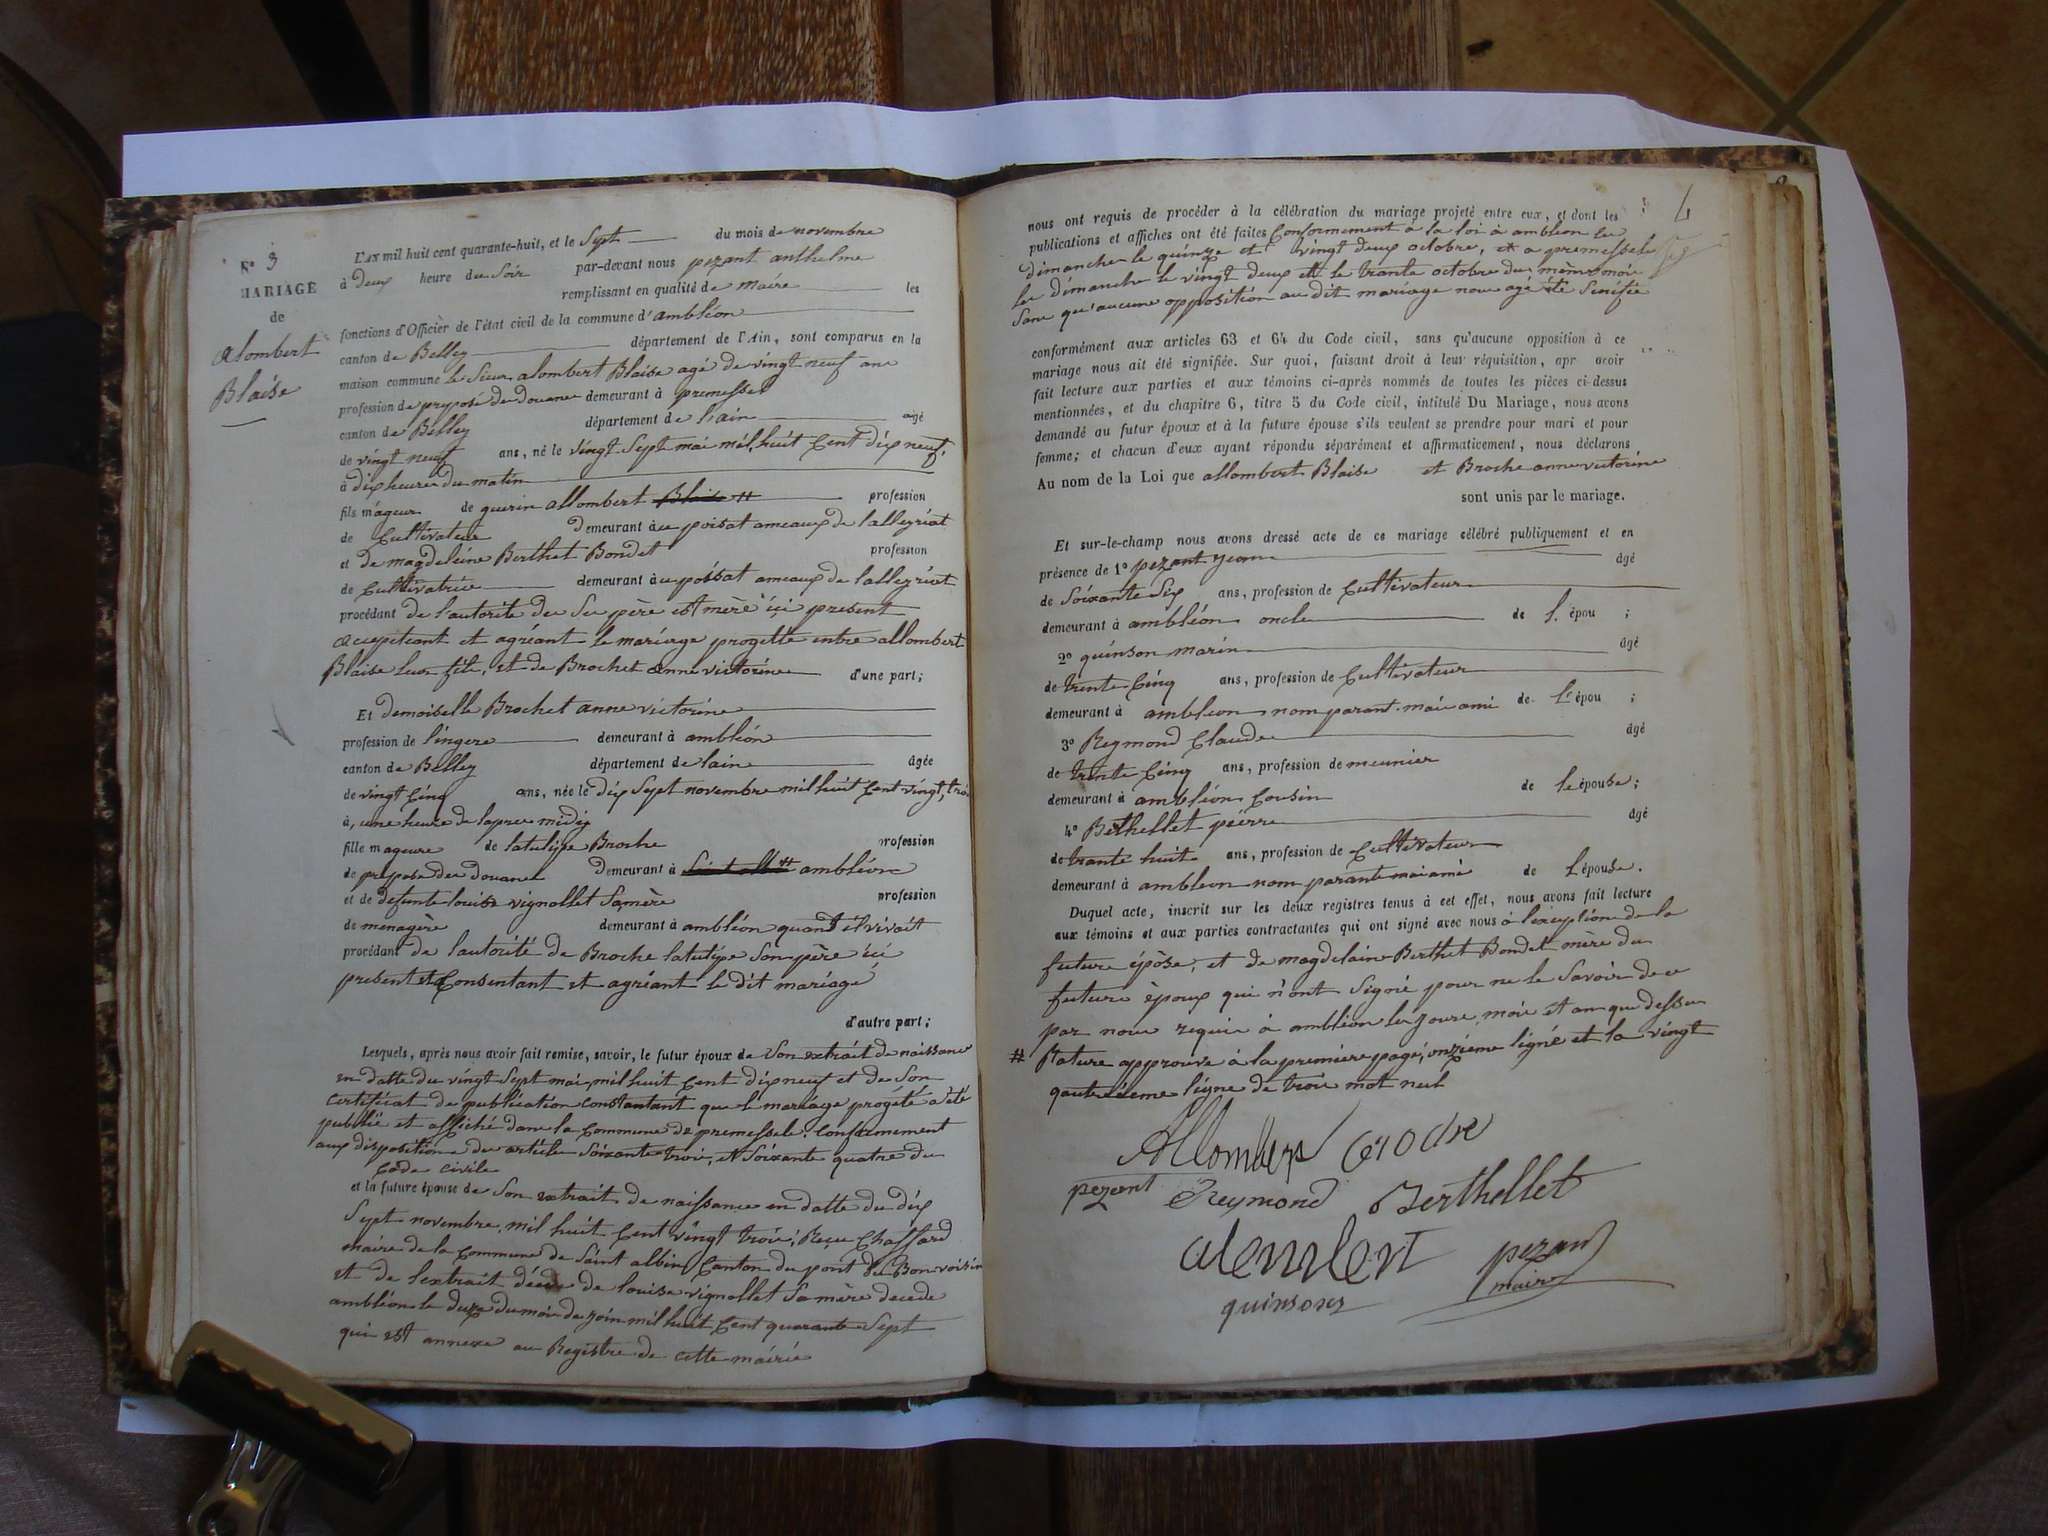 N° 3
MARIAGE
de
alombert
Blaise
L'AN mil huit cent quarante-huit, et le Sept du mois de novembre
à deux heure du Soir par-devant nous pezant anthelme
remplissant en qualité de maire les
fonctions d'Officier de l'état civil de la commune d'ambléon
canton de Belley département de l'Ain, sont comparus en la
maison commune le Sieur alombert Blaise agé de vingt neuf ans
profession de preposé des douanes demeurant à premessel
canton de Belley département de l'ain âgé
de vingt neuf ans, né le vingt Sept mai mil huit Cent dix neuf,
à dix heures du matin
fils mageur de guerin allombert Blaise # profession
de Cultivateur demeurant àu poisat ameaux de lalleyriat
et de magdeleine Berthet Bondet profession
de Cultivatrice demeurant àu poisat ameaux de lalleyriat
procédant de l'autorité de Se père est mère ici present
accepteant et agréant le mariage progetté entre allombert
Blaise leur fils, et de Brochet anne victorine d'une part;
Et demoiselle Brochet anne victorine
profession de lingere demeurant à ambléon
canton de Belley département de lain âgée
de vingt Cinq ans, née le dix Sept novembre mil huit Cent vingt, trois
à, une heure de lapres midy
fille mageure de latulipe Broche profession
de preposé des douanes demeurant à ambléon
et de defunte louise vignollet Samère profession
de menagère demeurant à ambléon quand il vivait
procédant de l'autorité de Broche latulipe Son père ici
present et Consentant et agréant le dit mariage
d'autre part;
Lesquels, après nous avoir fait remise, savoir, le futur époux de Son extrait de naissance
en datte du vingt Sept mai, mil huit Cent dix neuf et de Son
certificat de publication constantant que le mariage progété a été
publié et affiché dans la Commune de premessele. Conformement
aux disposition des article Soixante trois, et Soixante quatre du
Code civile
et la future épouse de Son extrait de naissance en datte du dix
Sept novembre, mil huit Cent vingt trois; Reçu Chaffard
maire de la Commune de Saint albin Canton du pont de Bonvoisin
et de lextrait décès de louise vignollet Sa mère decede
ambléon le duze du mois de join mil huit Cent quarante Sept
qui est annexe au Registre de cette mairie
4
nous ont requis de procéder à la célébration du mariage projeté entre eux, et dont les
publications et affiches ont été faites Conformement à la loi à ambleon les
dimanches le quinze et vingt deux octobre, et a premessele
les dimanche le vingt deux et le trante octobre du même mois
Sans qu'aucune opposition au dit mariage nous agé été Sinifiée
conformément aux articles 63 et 64 du Code civil, sans qu'aucune opposition à ce
mariage nous ait été signifiée. Sur quoi, faisant droit à leur réquisition, apr avoir
fait lecture aux parties et aux témoins ci-après nommés de toutes les pièces ci-dessus
mentionnées, et du chapitre 6, titre 5 du Code civil, intitulé Du Mariage, nous avons
demandé au futur époux et à la future épouse s'ils veulent se prendre pour mari et pour
femme; et chacun d'eux ayant répondu séparément et affirmaticement, nous déclarons
Au nom de la Loi que allombert Blaise et Broche anne victorine
sont unis par le mariage.
Et sur-le-champ nous avons dressé acte de ce mariage célébré publiquement et en
présence de 1° pezant jean âgé
de Soixante Six ans, profession de Cultivateur
demeurant à ambléon oncle de l. épou ;
2° quinson marin âgé
de trente Cinq ans, profession de Cultivateur
demeurant à ambleon nom parant mais ami de L'épou ;
3° Reymond Claude âgé
de trente Cinq ans, profession de meunier
demeurant à ambléon Cousin de le épouse;
4° Berthellet pierre âgé
de trante huit ans, profession de Cultivateur
demeurant à ambleon nom parante mais ami de L'épouse.
Duquel acte, inscrit sur les deux registres tenus à cet effet, nous avons fait lecture
aux témoins et aux parties contractantes qui ont signé avec nous à lexception de la
future épôse, et de magdelaine Berthet Bondet mère du
future époux qui n'ont Signé pour ne le Savoir de ce
par nous requis à ambléon les jours, mois et an que dessus
# Rature approuve à la premiere page, onzième ligne et la vingt
quatrième ligne de trois mot nul
Allombert Broche
pezant Reymond Berthellet
alembert pezant
maire
quinson